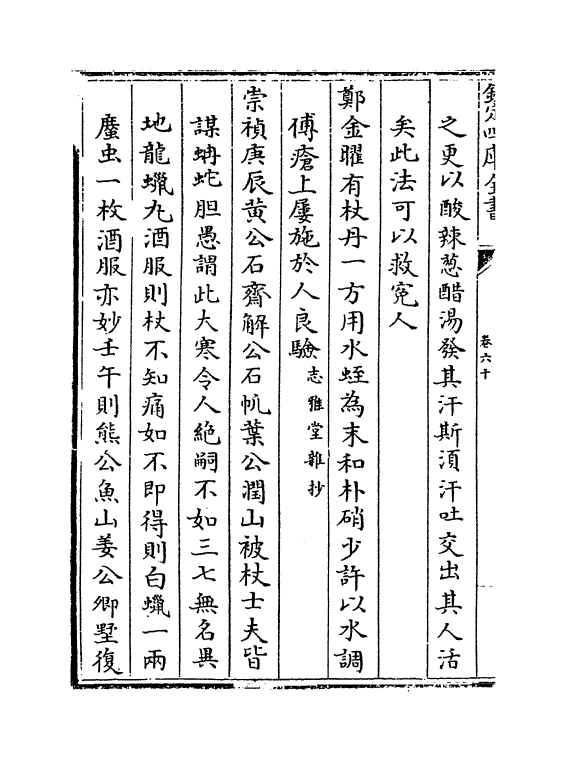 欽定四庫全書
卷六十
之更以酸辣葱醋湯發其汗斯須汗吐交出其人活
矣此法可以救冤人
鄭金曜有杖丹一方用水蛭為末和朴硝少許以水調
傅瘡上屢施於人良驗志雅堂雜抄
崇禎庚辰黄公石齋解公石帆葉公潤山被杖士夫皆
謀蚺蛇胆愚謂此大寒令人絶嗣不如三七無名異
地龍蠟丸酒服則杖不知痛如不即得則白蠟一兩
䗪虫一枚酒服亦妙壬午則熊公魚山姜公卿墅復